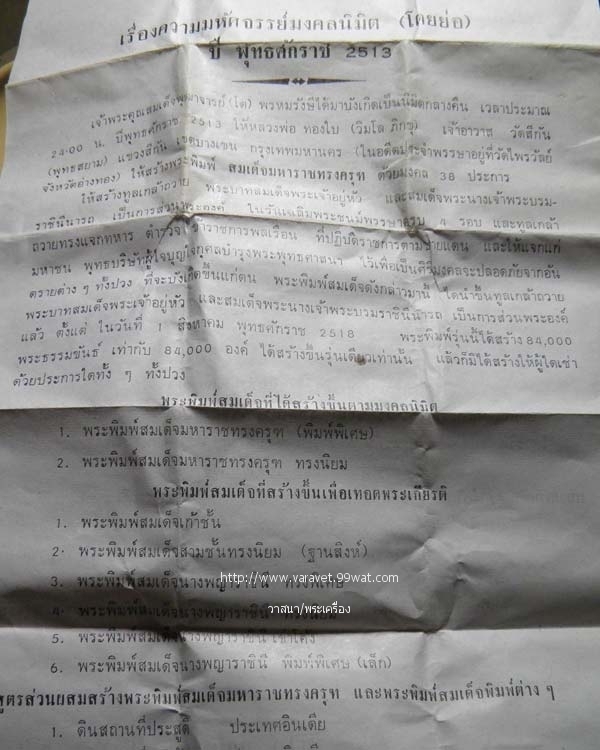 เรื่องความมหัศจรรย์มงคลนิมิต (โดยย่อ)
ปี พุทธศักราช 2513
เจ้าพระคุณสมเด็จพุฒาจารย์ (โต) พรหมรังษีได้มาบังเกิดเป็นนิมิตกลางคืน เวลาประมาณ
24.00 น. ปีพุทธศักราช 2513 ให้หลวงพ่อ ทองใบ (วิมโล ภิกขุ) เจ้าอาวาส วัดสีกัน
(พุทธสยาม) แขวงสีกัน เขตบางเขน กรุงเทพมหานคร (ในอดีตประจำพรรษาอยู่ที่วัดไพรวัลย์
จังหวัดอ่างทอง) ให้สร้างพระพิมพ์ สมเด็จมหาราชทรงครุฑ ด้วยมงคล 38 ประการ
ให้สร้างทูลเกล้าถวาย พระบาทสมเด็จพระเจ้าอยู่หัว และสมเด็จพระนางเจ้าพระบรม-
ราชินีนารถ เป็นการส่วนพระองค์ ในวันเฉลิมพระชนม์พรรษาครบ 4 รอบ และทูลเกล้า
ถวายทรงแจกทหาร ตำรวจ ข้าราชการพลเรือน ที่ปฏิบัติราชการตามชายแดน และให้แจกแก่
มหาชน พุทธบริษัทผู้ใจบุญใจกุศลบำรุงพระพุทธศาสนา ไว้เพื่อเป็นศิริมงคลจะปลอดภัยจากอัน
ตรายต่าง ๆ ทั้งปวง ที่จะบังเกิดขึ้นแก่ตน พระพิมพ์สมเด็จดังกล่าวมานี้ ได้นำขึ้นทูลเกล้าถวาย
พระบาทสมเด็จพระเจ้าอยู่หัว และสมเด็จพระนางเจ้าพระบรมราชินีนารถ เป็นการส่วนพระองค์
แล้ว ตั้งแต่ ในวันที่ 1 สิงหาคม พุทธศักราช 2518 พระพิมพ์รุ่นนี้ได้สร้าง 84,000
พระธรรมขันธ์ เท่ากับ 84,000 องค์ ได้สร้างขึ้นรุ่นเดียวเท่านั้น แล้วก็มิได้สร้างให้ผู้ใดเช่า
ด้วยประการใดทั้ง ๆ ทั้งปวง
พระพิมพ์สมเด็จที่ได้สร้างขึ้นตามมงคลนิมิต
1. พระพิมพ์สมเด็จมหาราชทรงครุฑ (พิมพ์พิเศษ)
2. พระพิมพ์สมเด็จมหาราชทรงครุฑ ทรงนิยม
พระพิมพ์สมเด็จที่สร้างขึ้นเพื่อเทอดพระเกียรติ
1. พระพิมพ์สมเด็จเก้าชั้น
2. พระพิมพ์สมเด็จสามชั้นทรงนิยม (ฐานสิงห์)
3. พระพิมพ์สมเด็จนางพญาราชินี ทรงพิเศษ
http://www.varavet.99wat.com
4. พระพิมพ์สมเด็จนางพญาราชินี ทรงนิยม
วาสนา/พระเครื่อง
5. พระพิมพ์สมเด็จนางพญาราชินี เข่าโค้ง
6. พระพิมพ์สมเด็จนางพญาราชินี พิมพ์พิเศษ (เล็ก)
สูตรส่วนผสมสร้างพระพิมพ์สมเด็จมหาราชทรงครุฑ และพระพิมพ์สมเด็จพิมพ์ต่าง ๆ
1. ดินสถานที่ประสูติ ประเทศอินเดีย